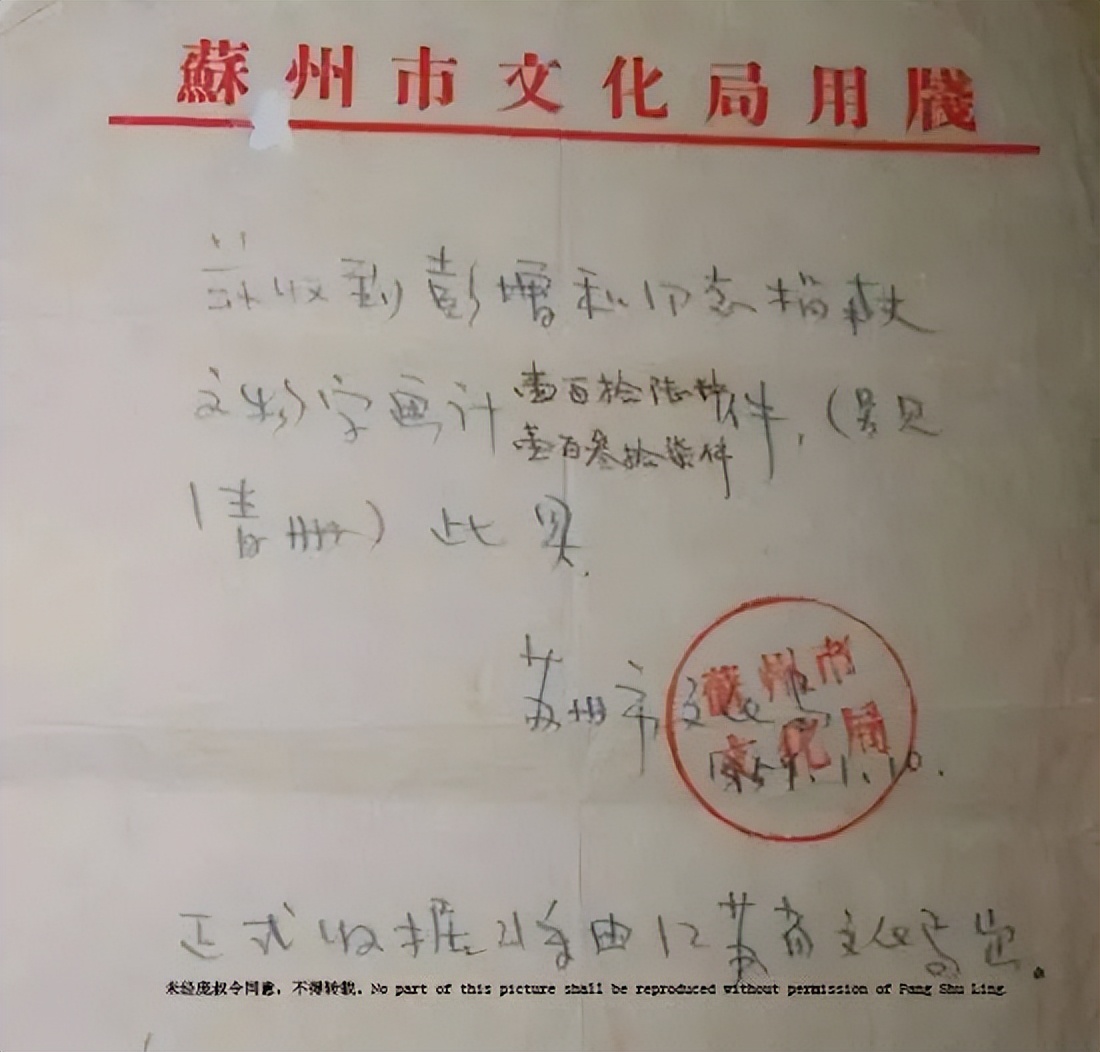 蘇州市文化局用牋
兹收到彭增和同志捐献
文物字画计壹百拾陆件
壹百叁拾柒件件，（另见
清册）此具．
苏州市文化局
蘇州市
文化局
1959.1.10.
正式收据将由江苏省文化局出。
未经庞叔令同意，不得转载。No part of this picture shall be reproduced without permission of Pang Shu Ling